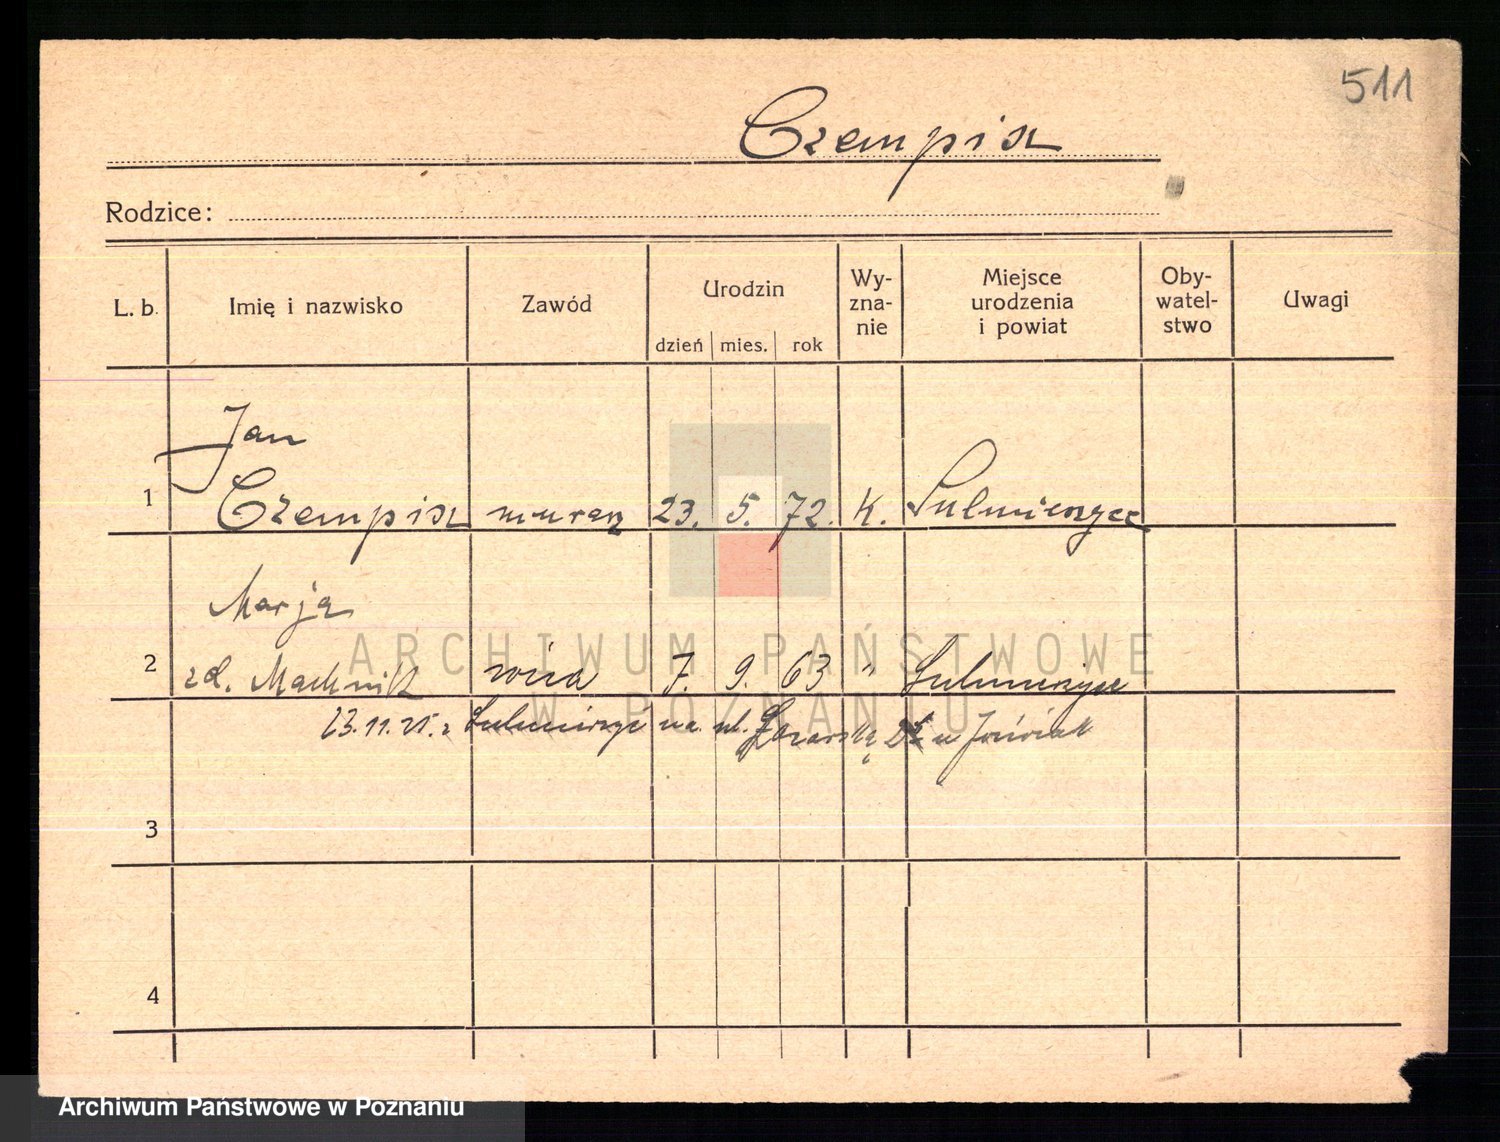 511
Czempisz
Rodzice:
L. b. Imię i nazwisko Zawód Urodzin dzień mies. rok Wy-zna-nie Miejsce urodzenia i powiat Oby-watel-stwo Uwagi
Jan
1 Czempisz murarz 23. 5. 72. K. Sulmierzyce
Marja
2 zd. Machnik 7. 9. 63 " Sulmierzyce
23.11.25. z na ul.
3
4
ARCHIWUM PAŃSTWOWE
W POZNANIU
Archiwum Państwowe w Poznaniu